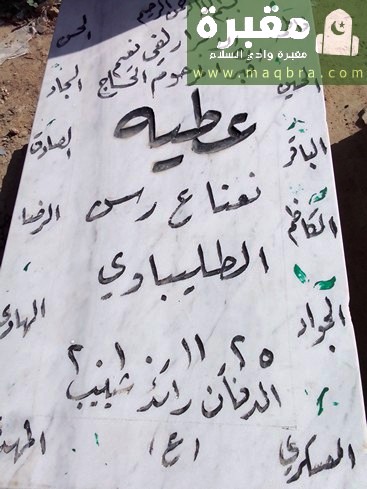 مقبرة
مقبرة وادي السلام
www.maqbra.com
الرحيم
الحسن
لفي نعيم
الحاج
السجاد
عطيه
الباقر
الصادق
نعناع رسن
الكاظم
الرضا
الطليباوي
الجواد
الهادي
٢٥ ١١ ٢٠١٠
الدفان رائد شبيب
العسكري
المهدي